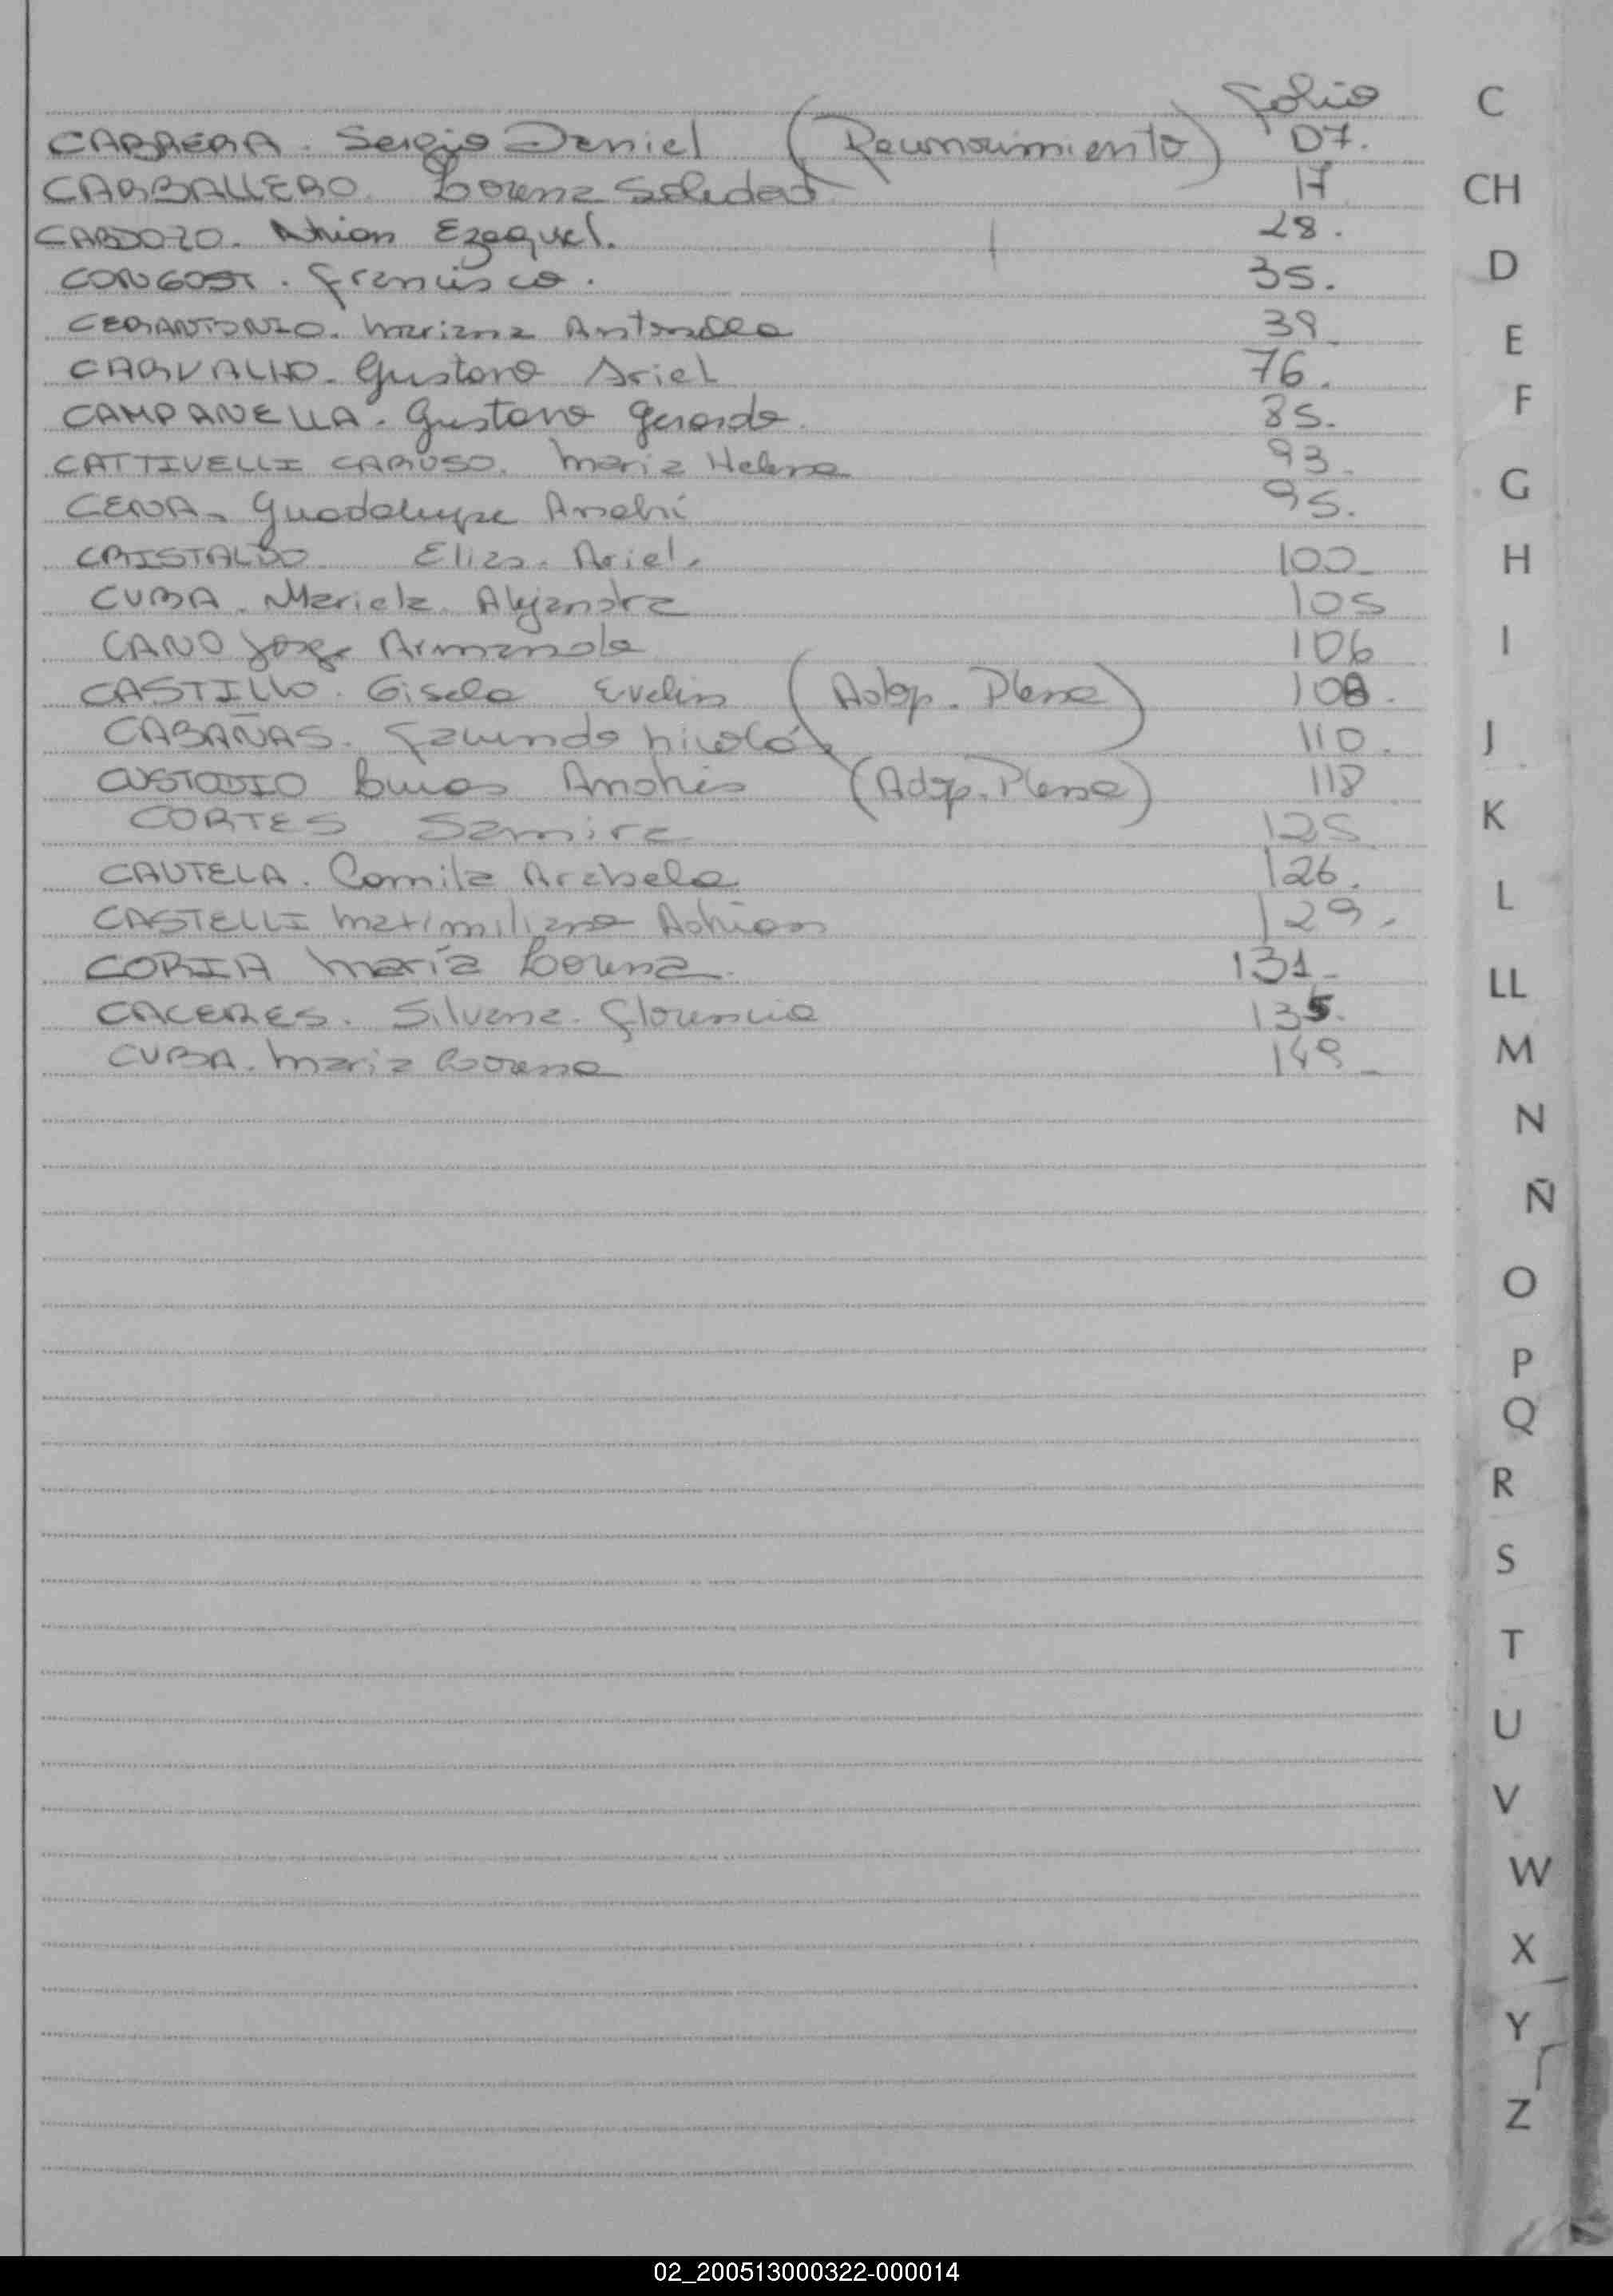 Folio
CABRERA. Sergio Daniel (Reconocimiento) 07.
CARBALLERO. Lorena Soledad 17
CARDOZO. Adrian Ezequiel. 28.
CONGOST. Francisco. 35.
CERANTONIO. Mariana Antonella 39
CARVALHO. Gustavo Ariel 76.
CAMPANELLA. Gustavo Gerardo. 85.
CATTIVELLI CARUSO. Maria Helena 93.
CENA. Guadalupe Anahí 95.
CRISTALDO. Elias. Ariel. 100
CUBA. Mariela. Alejandra 105
CANO Jorge Armando 106
CASTILLO. Gisela Evelin (Adop. Plena) 108.
CABAÑAS. Facundo Nicolás 110.
CUSTODIO Andrés (Adop. Plena) 118
CORTES Samira 125
CAUTELA. Camila Arabela 126.
CASTELLI Maximiliano Adrian 129.
CORIA María Lorena. 131
CACERES. Silvana. Florencia 135.
CUBA. Maria Lorena 149
C
CH
D
E
F
G
H
I
J
K
L
LL
M
N
Ñ
O
P
Q
R
S
T
U
V
W
X
Y
Z
02_200513000322-000014